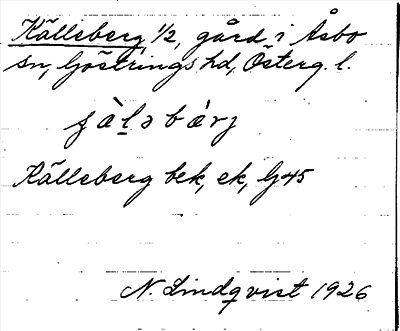 Källeberg, 1/2, gård i Åsbo
sn, Göstrings hd, Österg. l.
ʃàl̠əbárj
Källeberg bek, ek, Gj 45
N. Lindqvist 1926